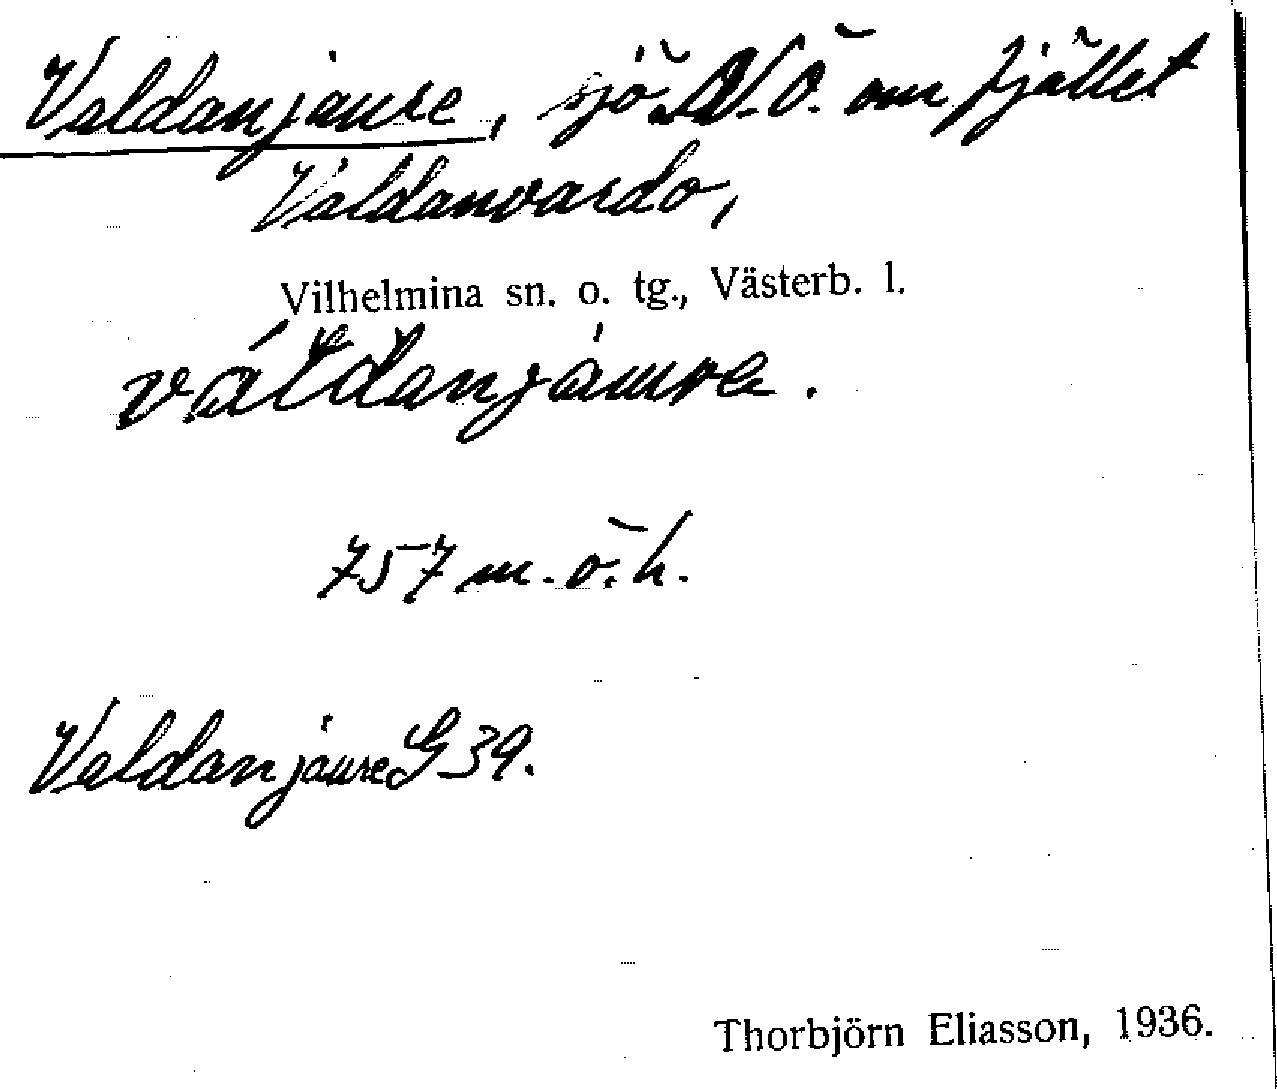 Valdanjaure, sjö N.Ö. om fjället
Valdanvardo,
Vilhelmina sn. o. tg., Västerb. l.
váldanjàuᵛrē.
757 m. ö. h.
Valdanjaure G 39.
Thorbjörn Eliasson, 1936.